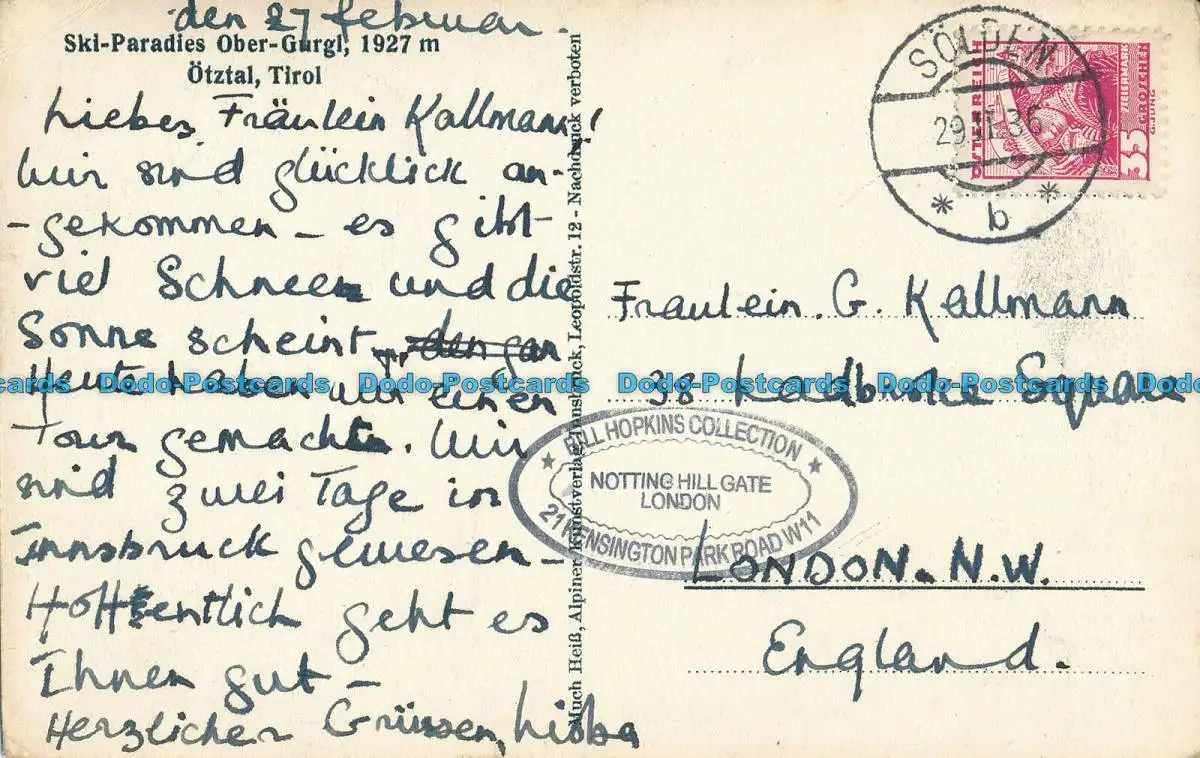 den 27 februar.
Ski-Paradies Ober-Gurgl, 1927 m
Ötztal, Tirol
Liebes Fräulein Kallmann!
Wir sind glücklick an-
-gekommen - es gibt
viel Schnee und die
Sonne scheint,
Heute haben wir einen
Tour gemacht. Wir
sind zwei Tage in
Innsbruck gewesen -
Hoffentlich geht es
Ihnen gut -
Herzlichen Grüssen,
Much Heiß, Alpiner Kunstverlag, Innsbruck, Leopoldstr. 12 - Nachdruck verboten
SÖLDEN
29.II.36
* b *
ÖSTERREICH
STEIERMARK
35 GROSCHEN
Fräulein. G. Kallmann
38 Ladbroke Square
LONDON. N.W.
England.
BILL HOPKINS COLLECTION
NOTTING HILL GATE
LONDON
21 KENSINGTON PARK ROAD W11
Dodo-Postcards Dodo-Postcards Dodo-Postcards Dodo-Postcards Dodo-Postcards